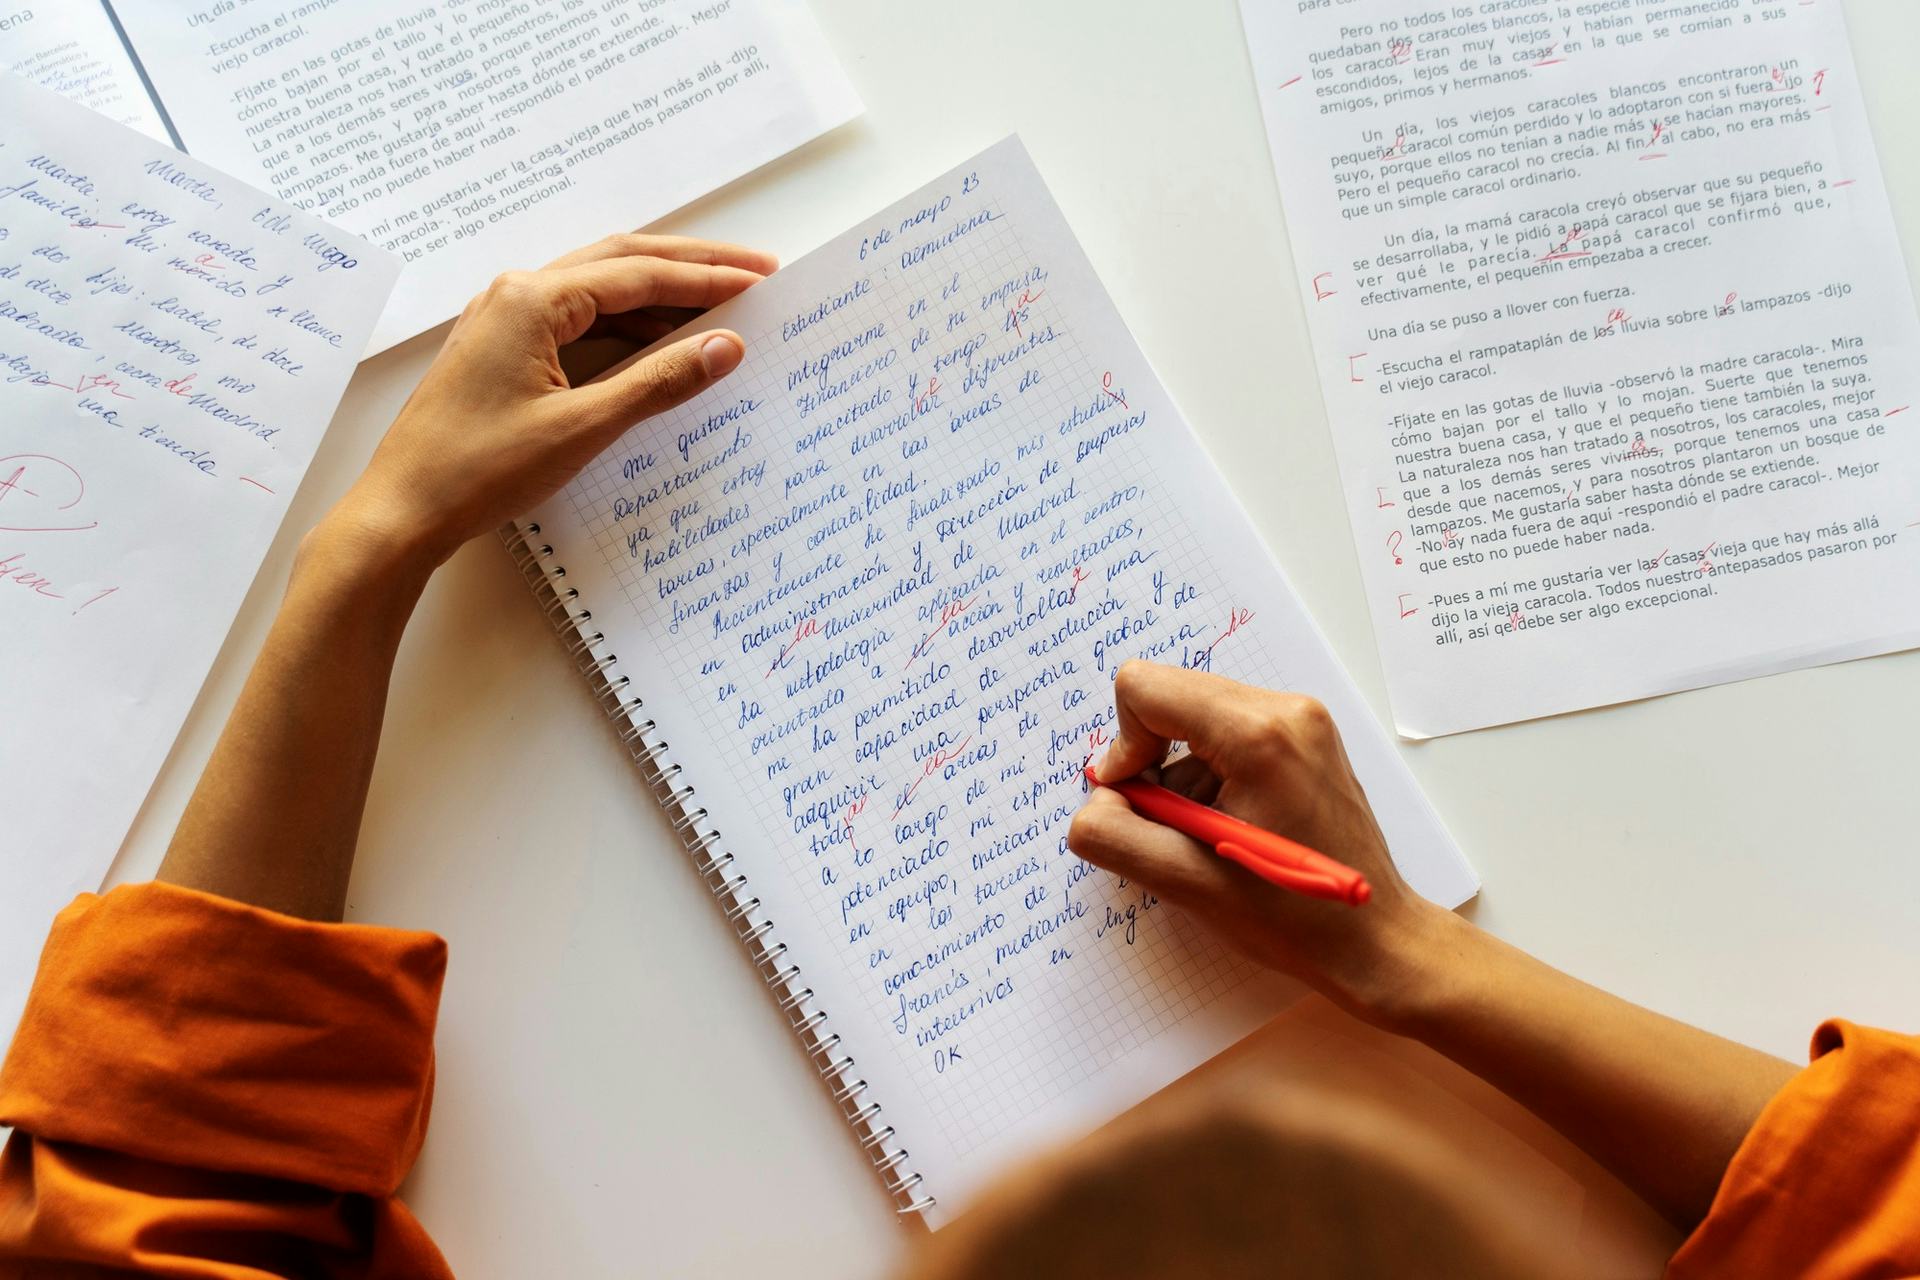 ena
en Barcelona
informático y
desayuné
(ir) de casa
(ir) a su
Un día se
-Escucha el rampa
viejo caracol.
-Fíjate en las gotas de lluvia -ob
cómo bajan por el tallo y lo moja
nuestra buena casa, y que el pequeño tiene
La naturaleza nos han tratado a nosotros, los
que a los demás seres vivos, porque tenemos una
nacemos, y para nosotros plantaron un bosq
lampazos. Me gustaría saber hasta dónde se extiende.
-No hay nada fuera de aquí -respondió el padre caracol-. Mejor
esto no puede haber nada.
a mí me gustaría ver la casa vieja que hay más allá -dijo
caracola-. Todos nuestros antepasados pasaron por allí,
be ser algo excepcional.
Marta, 6 de mayo
marta. estoy casada y
familias. Mi merido se llama
a
dos hijos: Isabel, de doce
de diez. Nosotros
labrado, cerca de Madrid.
trabajo en una tienda
A-
bien!
6 de mayo 23
Estudiante: Almudena
Me gustaria integrarme en el
Departamento Financiero de su empresa,
ya que estoy capacitado y tengo los
a
habilidades para desarrobar diferentes
tareas, especialmente en las áreas de
finanzas y contabilidad.
Recientemente he finalizado mis estudios
o
en administración y Dirección de Empresas
en el Universidad de Madrid.
la
La metodología aplicada en el centro,
orientada a el acción y resultados,
la
me ha permitido desarrollas una
r
gran capacidad de resolución y
adquirir una perspectiva global de
todo el areas de la empresa.
as la
a lo largo de mi formac haj
he
potenciado mi espiritu
u
en equipo, iniciativa
en las tareas,
conocimiento de id
francés, mediante
intensivos en Ingl
OK
para co
Pero no todos los caracoles
quedaban dos caracoles blancos, la especie más
los caracol. Eran muy viejos y habían permanecido
es
escondidos, lejos de la casas en la que se comían a sus
amigos, primos y hermanos.
Un día, los viejos caracoles blancos encontraron un
pequeña caracol común perdido y lo adoptaron con si fuera ijo
suyo, porque ellos no tenían a nadie más y se hacían mayores.
Pero el pequeño caracol no crecía. Al fin y al cabo, no era más
que un simple caracol ordinario.
Un día, la mamá caracola creyó observar que su pequeño
se desarrollaba, y le pidió a papá caracol que se fijara bien, a
ver qué le parecía. La papá caracol confirmó que,
efectivamente, el pequeñín empezaba a crecer.
Una día se puso a llover con fuerza.
-Escucha el rampataplán de los lluvia sobre las lampazos -dijo
la
el viejo caracol.
-Fíjate en las gotas de lluvia -observó la madre caracola-. Mira
cómo bajan por el tallo y lo mojan. Suerte que tenemos
nuestra buena casa, y que el pequeño tiene también la suya.
La naturaleza nos han tratado a nosotros, los caracoles, mejor
que a los demás seres vivimos, porque tenemos una casa
desde que nacemos, y para nosotros plantaron un bosque de
lampazos. Me gustaría saber hasta dónde se extiende.
? -No ay nada fuera de aquí -respondió el padre caracol-. Mejor
que esto no puede haber nada.
-Pues a mí me gustaría ver las casas vieja que hay más allá
dijo la vieja caracola. Todos nuestro antepasados pasaron por
allí, así qe debe ser algo excepcional.